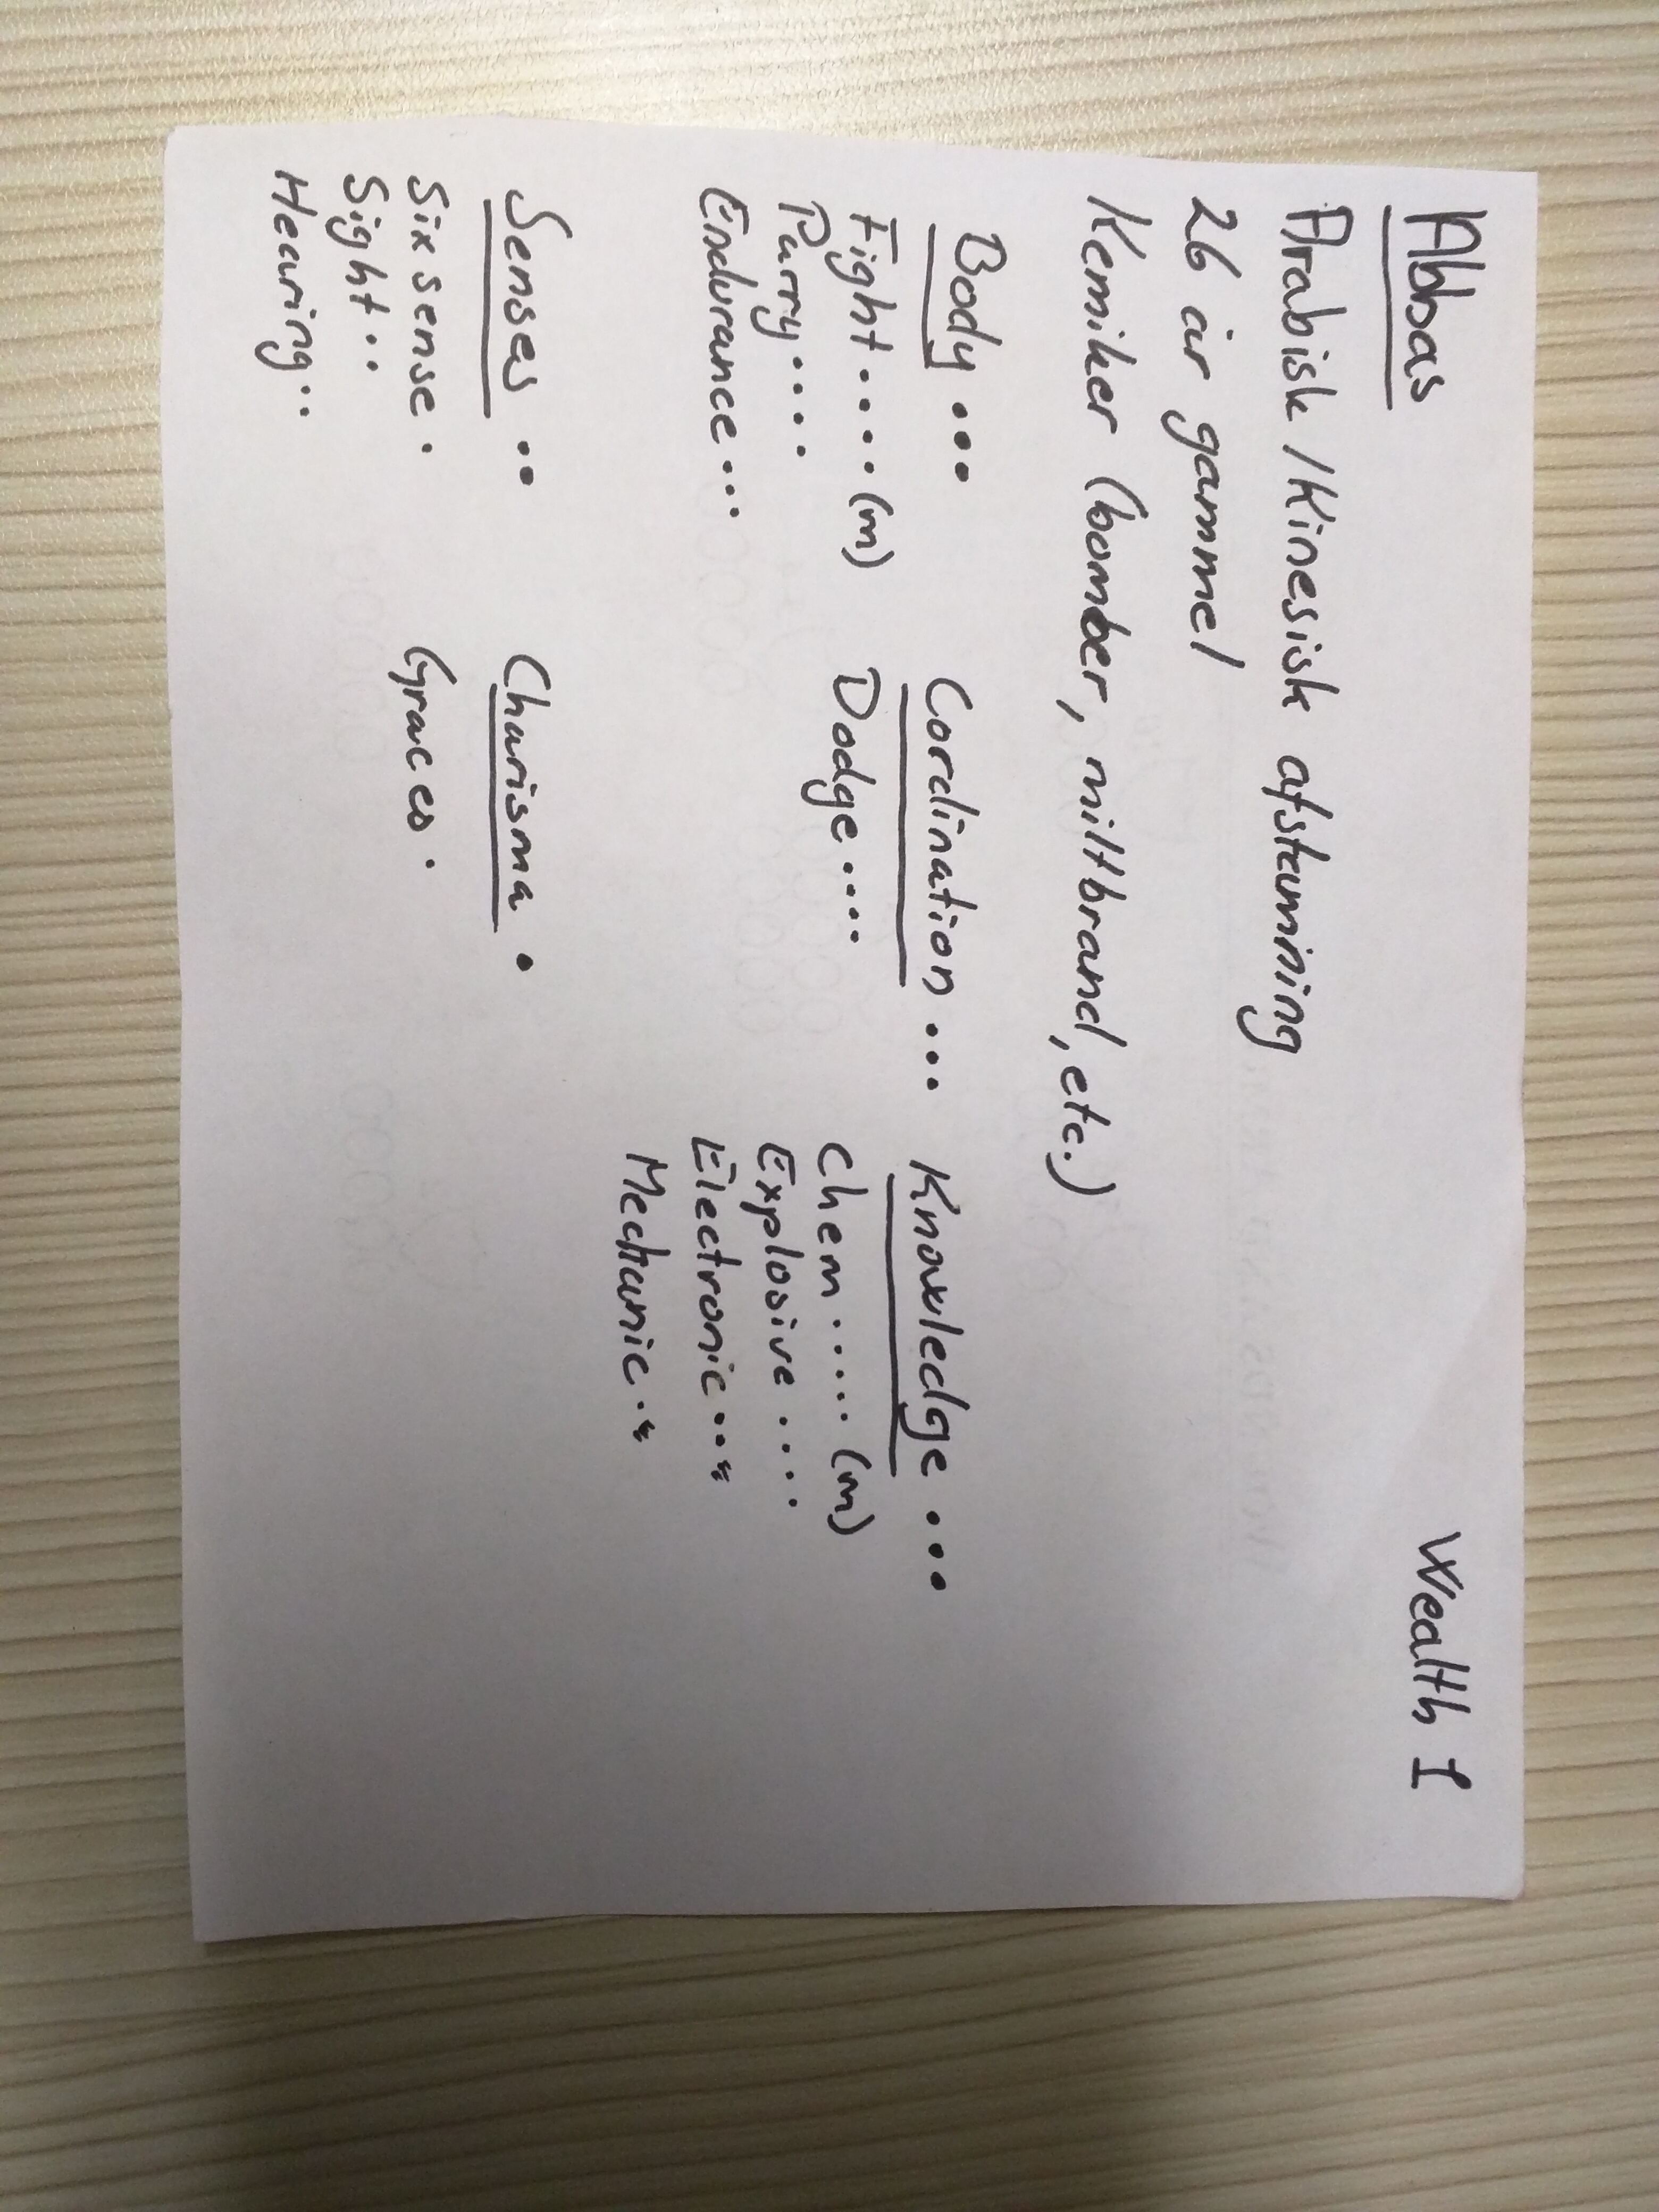 Abbas Wealth 1
Arabisk/Kinesisk afstamning
26 år gammel
Kemiker (bomber, miltbrand, etc.)
Body ... Cordination ... Knowledge ...
Fight .... (m) Dodge .... Chem ..... (m)
Parry .... Explosive ....
Endurance ... Electronic ...
Mechanic ..
Senses .. Charisma .
Six sense . Graces .
Sight ..
Hearing ..